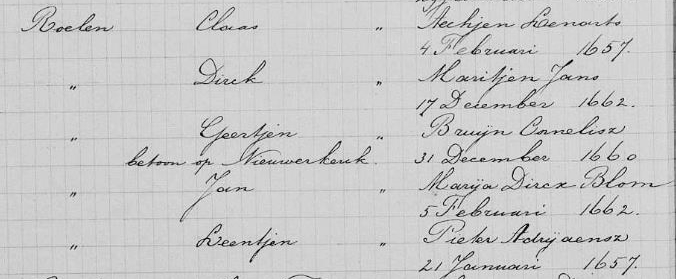 Roelen Claas " Aechjen Leenarts
4 Februari 1657.
" Dirck " Maritjen Jans
17 December 1662.
" Geertjen " Bruijn Cornelisz
betoon op Nieuwerkerck. 31 December 1660
" Jan " Marija Dircx Blom
5 Februari 1662.
" Leentjen " Pieter Adrijaensz
21 Januari 1657.